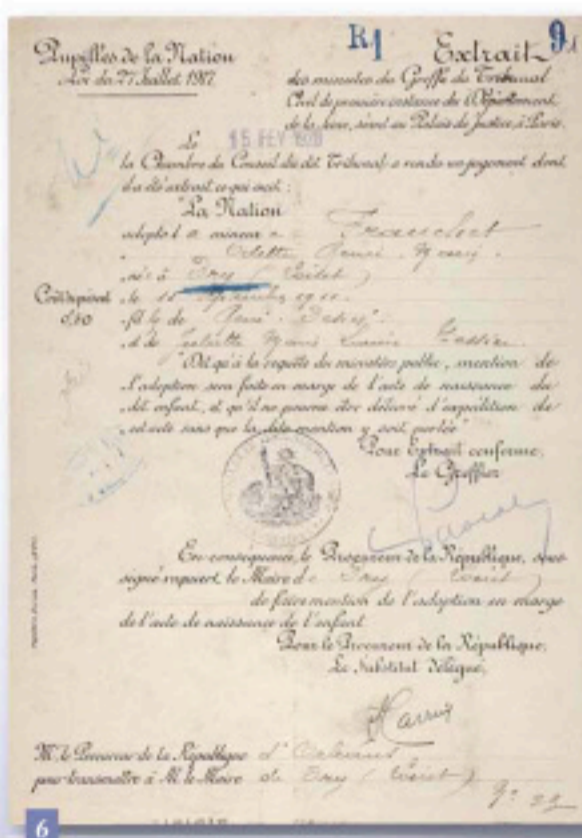 R1
91
Pupilles de la Nation
Loi du 27 Juillet 1917
Extrait
des minutes du Greffe du Tribunal
Civil de première instance du Département
de la Seine, séant au Palais de Justice, à Paris.
Le 15 FEV 1920
la Chambre du Conseil du dit Tribunal a rendu un jugement dont
il a été extrait ce qui suit :
"La Nation
adopte l mineur
Odette Marie
né à Ivry (Loiret)
Coût du présent
0,50
le 1911
fil de René
et de Juliette Marie
"Dit qu'à la requête du ministère public, mention de
l'adoption sera faite en marge de l'acte de naissance du
dit enfant, et qu'il ne pourra être délivré d'expédition de
cet acte sans que la dite mention y soit portée"
Pour Extrait conforme,
Le Greffier
En conséquence, le Procureur de la République, sous-
signé requiert, le Maire d
de faire mention de l'adoption en marge
de l'acte de naissance de l'enfant.
Pour le Procureur de la République,
Le Substitut délégué,
M. le Procureur de la République d'Orléans
pour transmettre à M. le Maire de (Loiret)
6